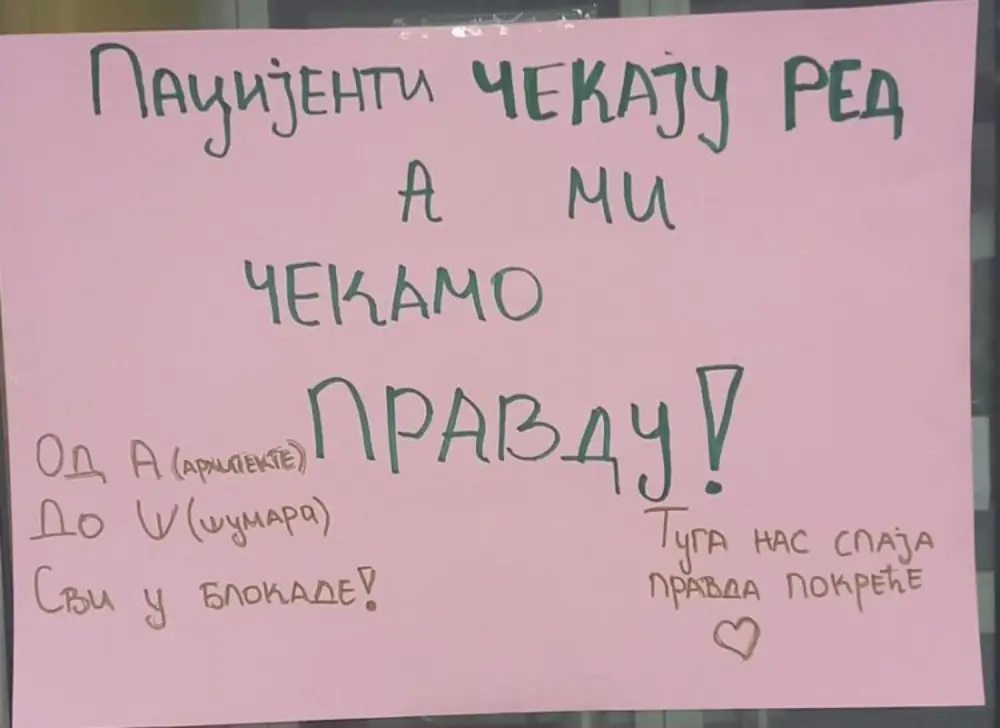 ПАЦИЈЕНТИ ЧЕКАЈУ РЕД
А МИ
ЧЕКАМО
ПРАВДУ!
ОД А (АРХИТЕКТЕ)
ДО Ш (ШУМАРА)
СВИ У БЛОКАДЕ!
ТУГА НАС СПАЈА
ПРАВДА ПОКРЕЋЕ